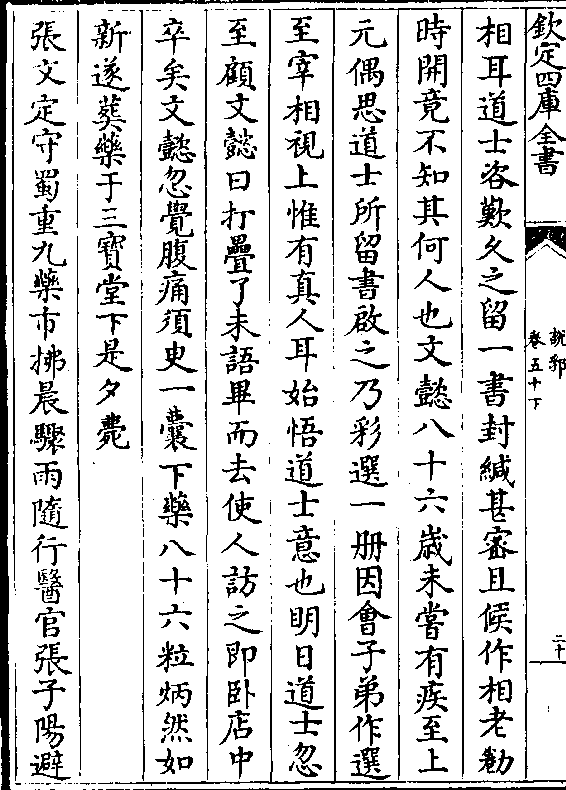 欽定四庫全書
說郛
卷五十下
二十
相耳道士咨歎久之留一書封緘甚審且候作相老勑
時開竟不知其何人也文懿八十六歲未嘗有疾至上
元偶思道士所留書啟之乃彩選一册因會子弟作選
至宰相視上惟有真人耳始悟道士意也明日道士忽
至顧文懿曰打疊了未語畢而去使人訪之即卧店中
卒矣文懿忽覺腹痛須臾一囊下藥八十六粒炳然如
新遂葬藥于三寶堂下是夕薨
張文定守蜀重九藥市拂晨驟雨隨行醫官張子陽避